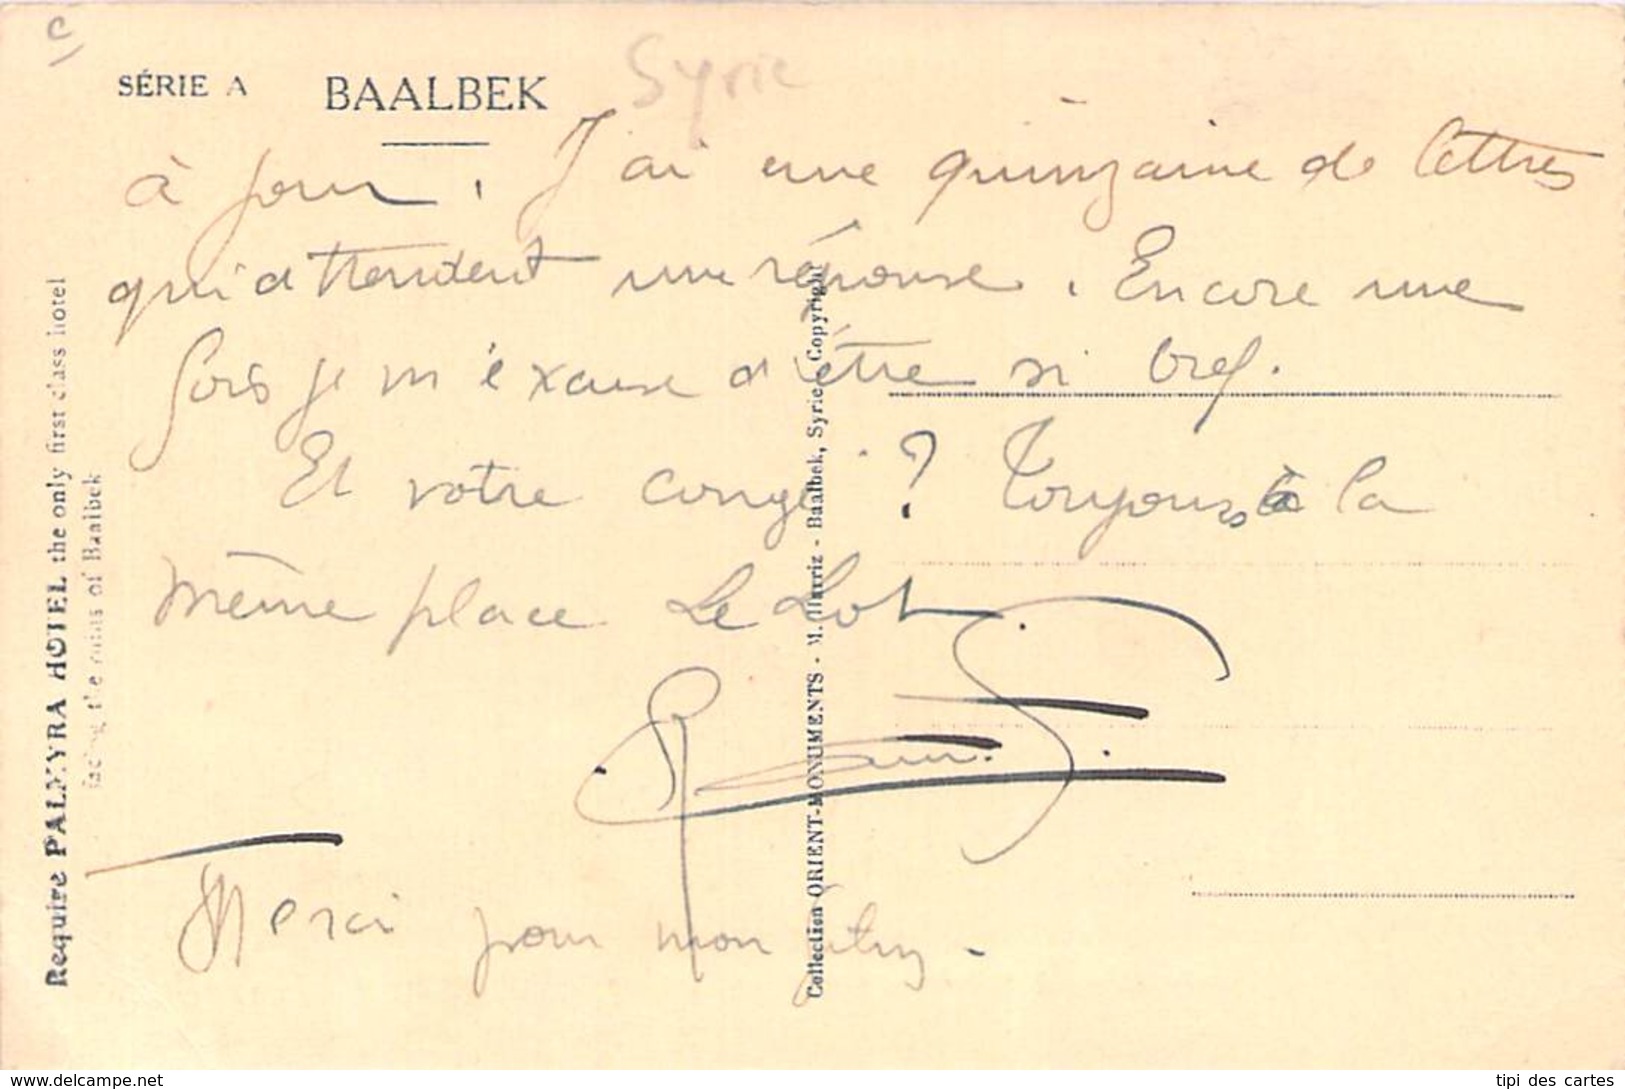 c
SÉRIE A BAALBEK
Syrie
à jour. J'ai une quinzaine de lettres
qui attendent une réponse. Encore une
fois je m'excuse d'être si bref.
Et votre congé ? Toujours à la
même place Le Lot
Merci pour mon
Requise PALMYRA HOTEL the only first class hotel
facing the ruins of Baalbek
Collection ORIENT-MONUMENTS - M. - Baalbek, Syrie Copyright
delcampe.net
tipi des cartes